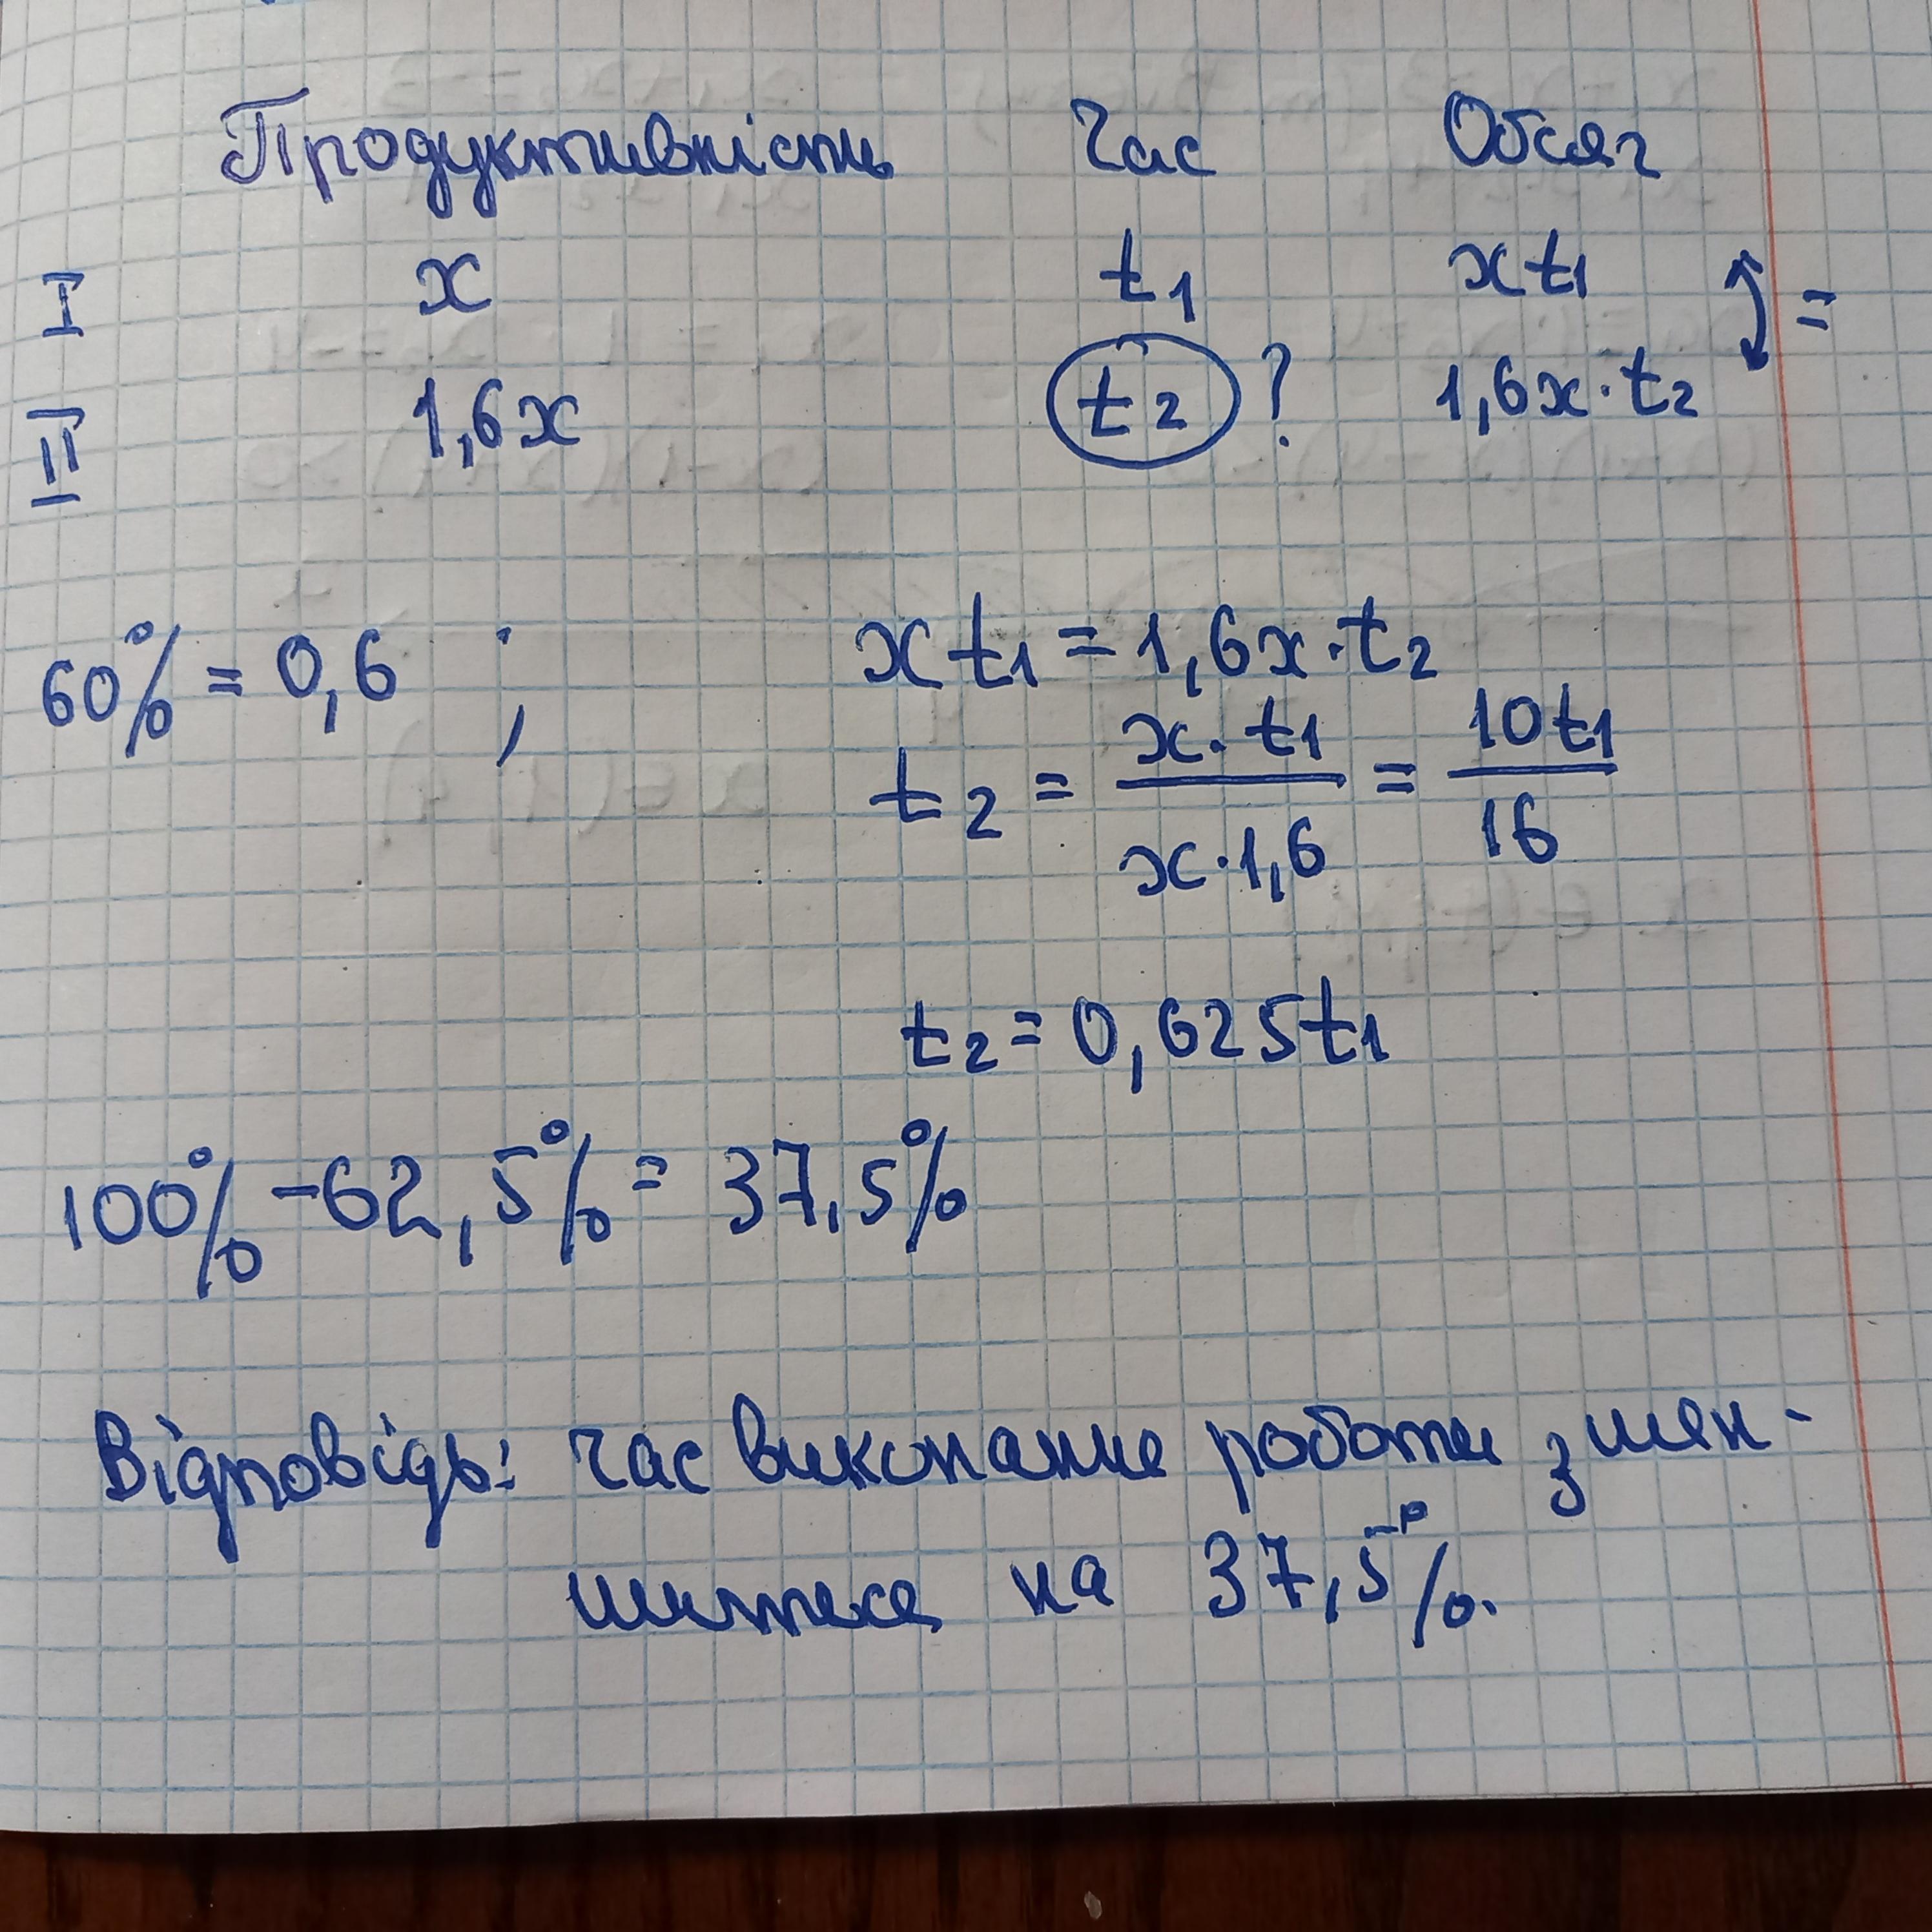 Продуктивність Час Обсяг
I x t1 xt1
II 1,6x t2 ? 1,6x·t2 =
60% = 0,6 ; xt1 = 1,6x·t2
t2 = x·t1 / x·1,6 = 10t1 / 16
t2 = 0,625t1
100% - 62,5% = 37,5%
Відповідь: час виконання роботи змен-
шиться на 37,5%.